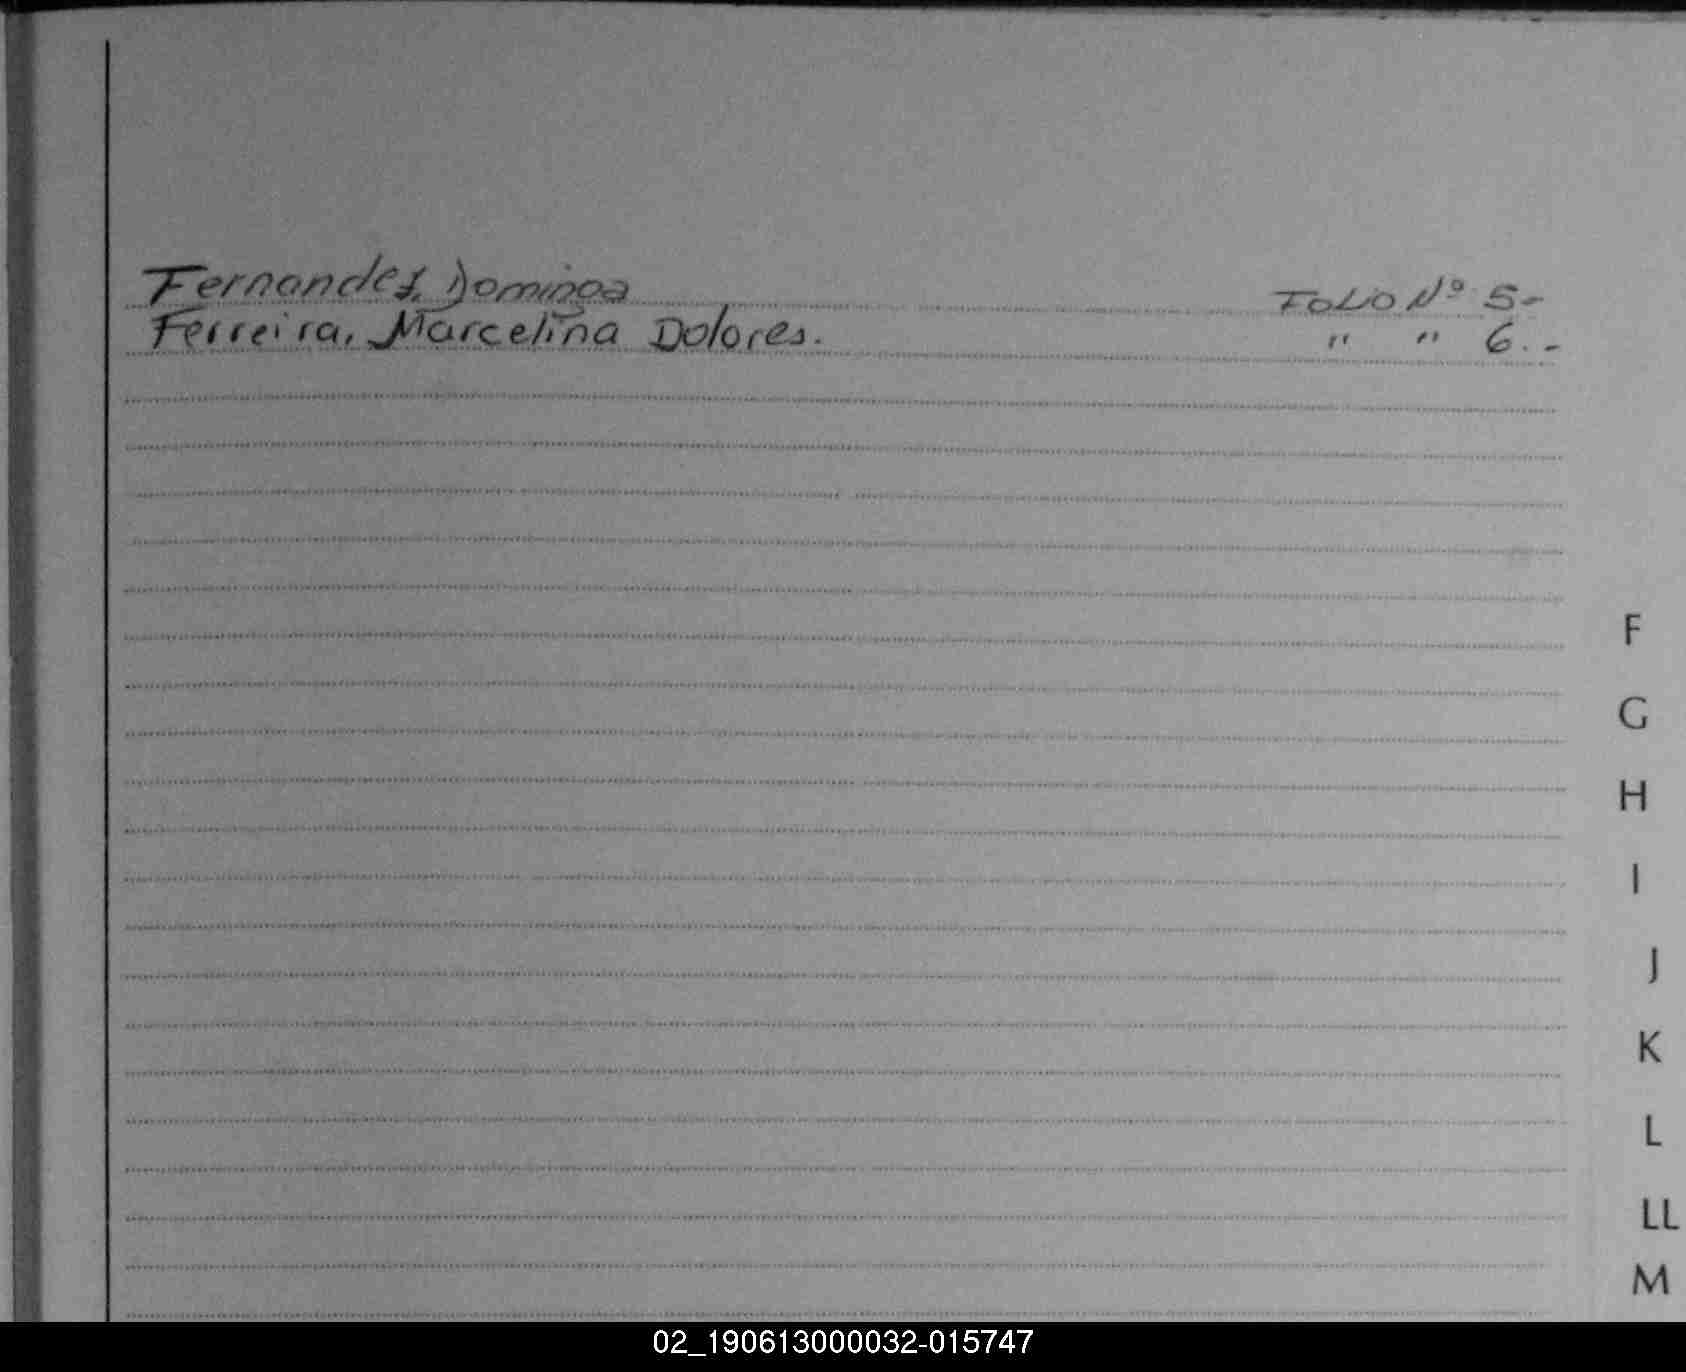 Fernandez, Dominga FOLIO Nº 5-
Ferreira, Marcelina Dolores. " " 6.-
F
G
H
I
J
K
L
LL
M
02_190613000032-015747